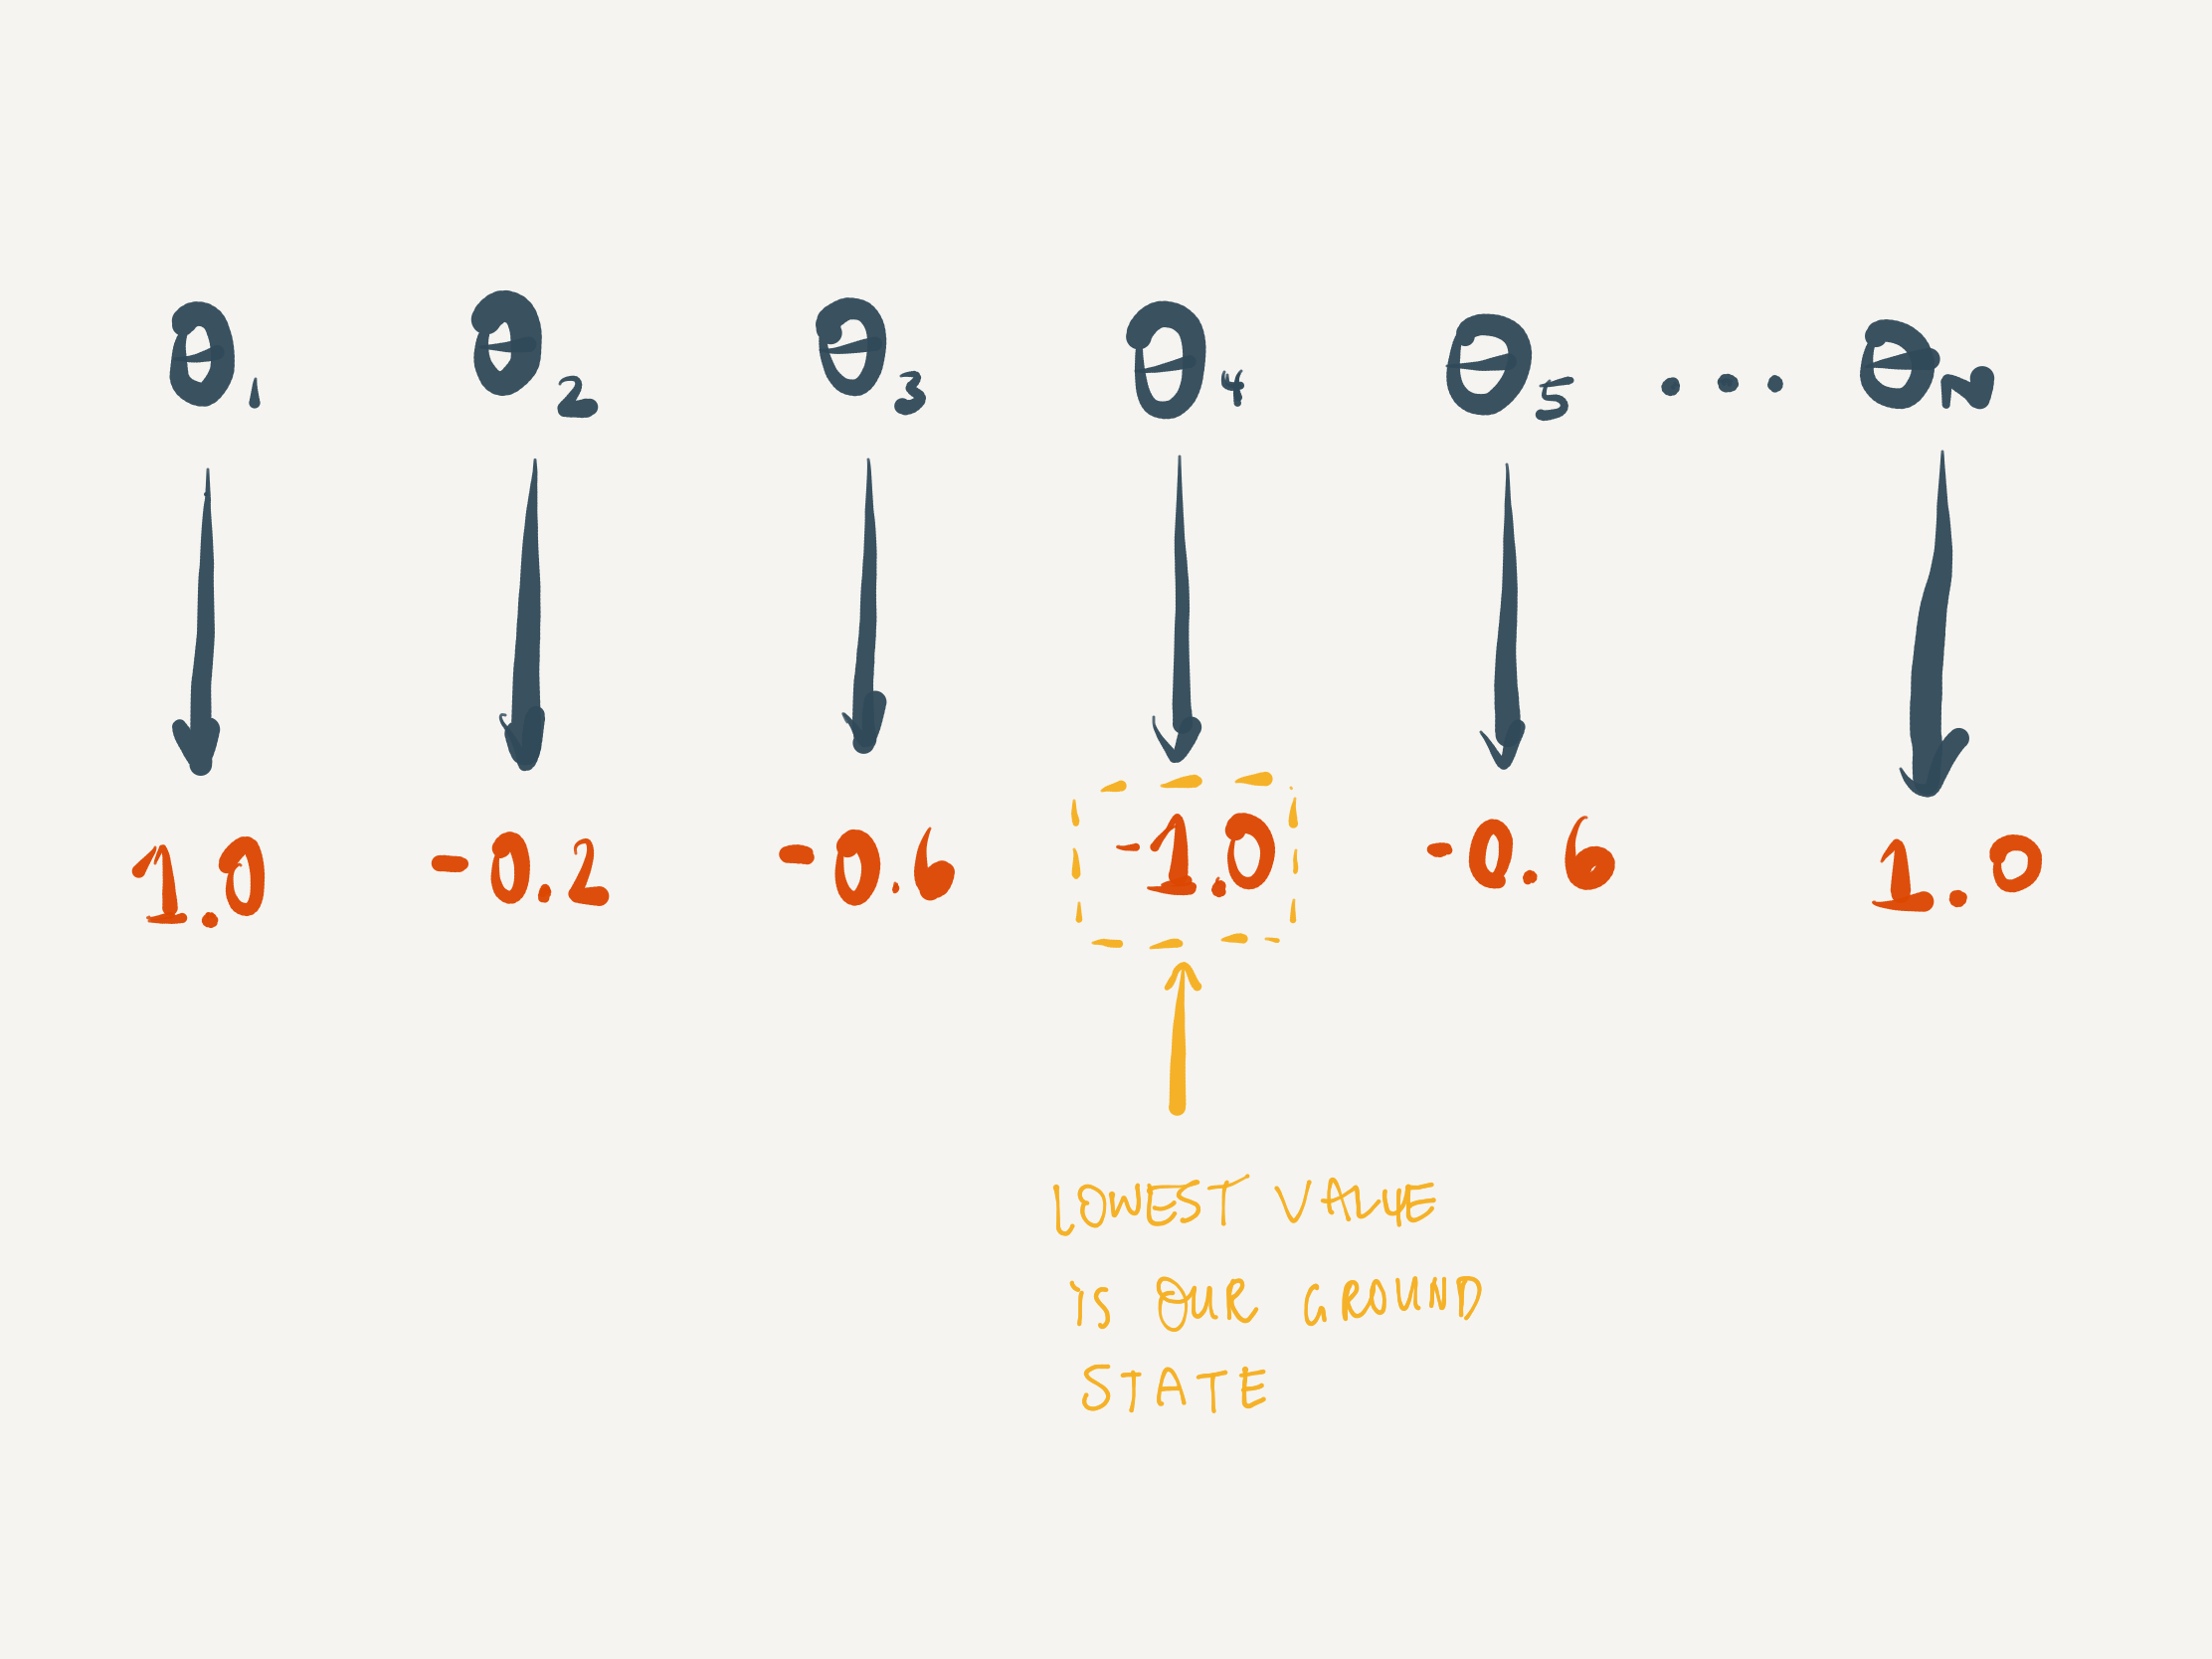 θ1 θ2 θ3 θ4 θ5 .... θN
1.0 -0.2 -0.6 -1.0 -0.6 1.0
LOWEST VALUE
IS OUR GROUND
STATE